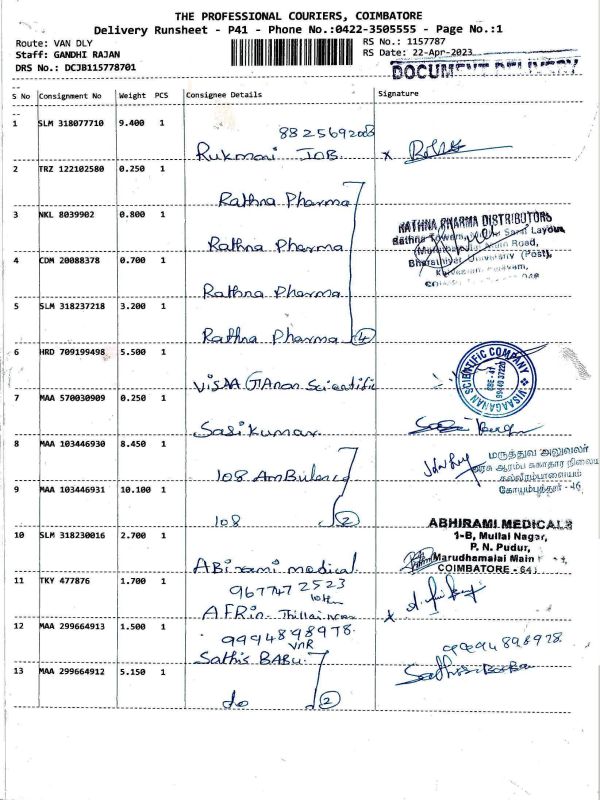 THE PROFESSIONAL COURIERS, COIMBATORE
Delivery Runsheet - P41 - Phone No.:0422-3505555 - Page No.:1
Route: VAN DLY
Staff: GANDHI RAJAN
DRS No.: DCJB115778701
RS No.: 1157787
RS Date: 22-Apr-2023
DOCUMENT DELIVERY
S No Consignment No Weight PCS Consignee Details Signature
1 SLM 318077710 9.400 1
Rukmani JOB
2 TRZ 122102580 0.250 1
Rathna Pharma
3 NKL 8039902 0.800 1
Rathna Pharma
RATHNA PHARMA DISTRIBUTORS
Rathna Towers,
Layout,
Road,
Bharathiyar University (Post),
4 CDM 20088378 0.700 1
Rathna Pharma
5 SLM 318237218 3.200 1
Rathna Pharma 4
6 HRD 709199498 5.500 1
VISAA GAnan Scientific
VISAAGANAN SCIENTIFIC COMPANY
CBE - 41
7 MAA 570030909 0.250 1
Sasikumar
8 MAA 103446930 8.450 1
108 AmBulance
மருத்துவ அலுவலர்
அரசு ஆரம்ப சுகாதார நிலைய
கல்வீரம்பாளையம்
கோயம்புத்தூர் - 46
9 MAA 103446931 10.100 1
108 2
10 SLM 318230016 2.700 1
ABirami medical
ABHIRAMI MEDICALS
1-B, Mullai Nagar,
P. N. Pudur,
Marudhamalai Main
COIMBATORE - 641
11 TKY 477876 1.700 1
9677472523
AFRin Thillai
12 MAA 299664913 1.500 1
9994898978
VNR
Sathis BABU
9994898978
Sathis Babu
13 MAA 299664912 5.150 1
do 2